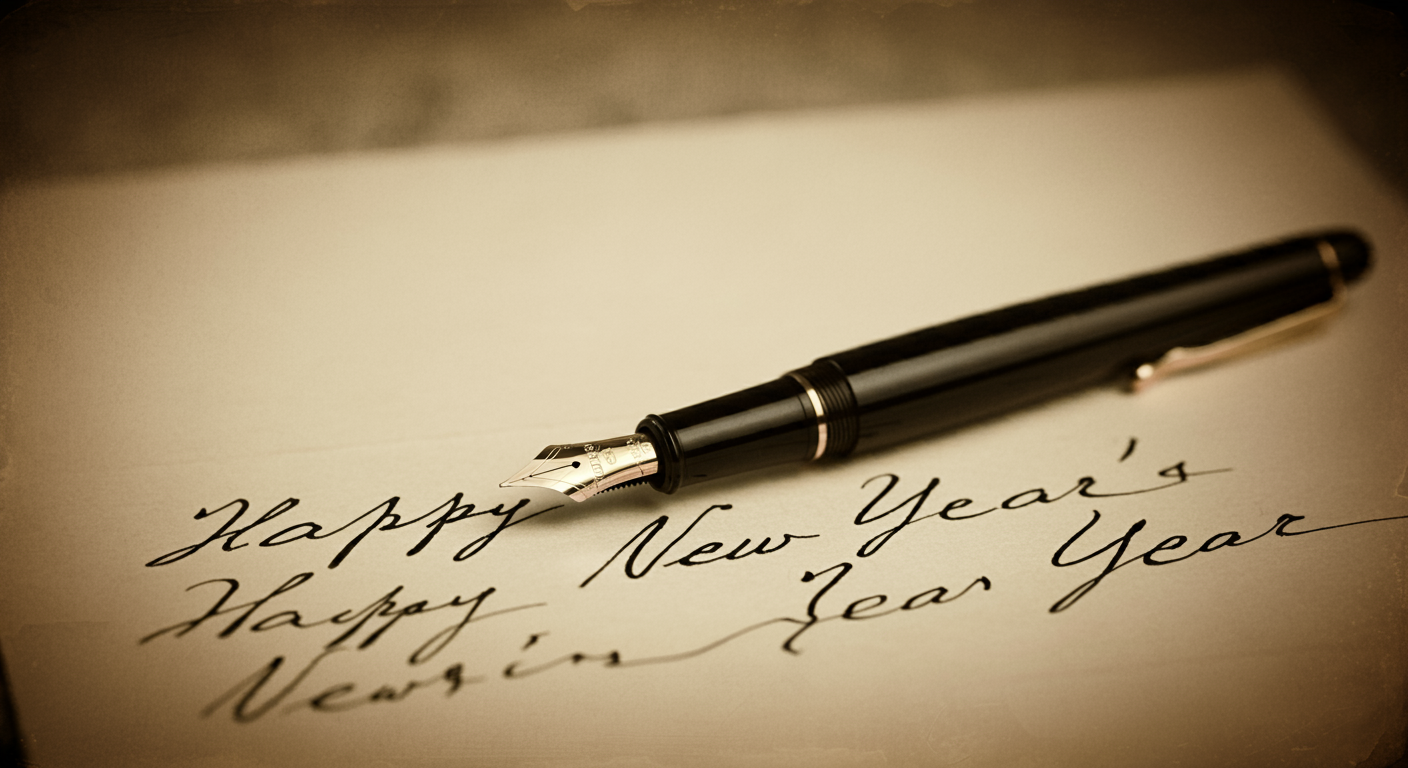 Happy New Year's
Happy Year Year
News in